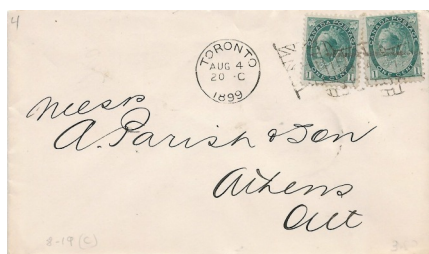 4
TORONTO
AUG 4
20 - C
1899
Messrs
A. Parish & Son
Athens
Ont
8-19 (C)